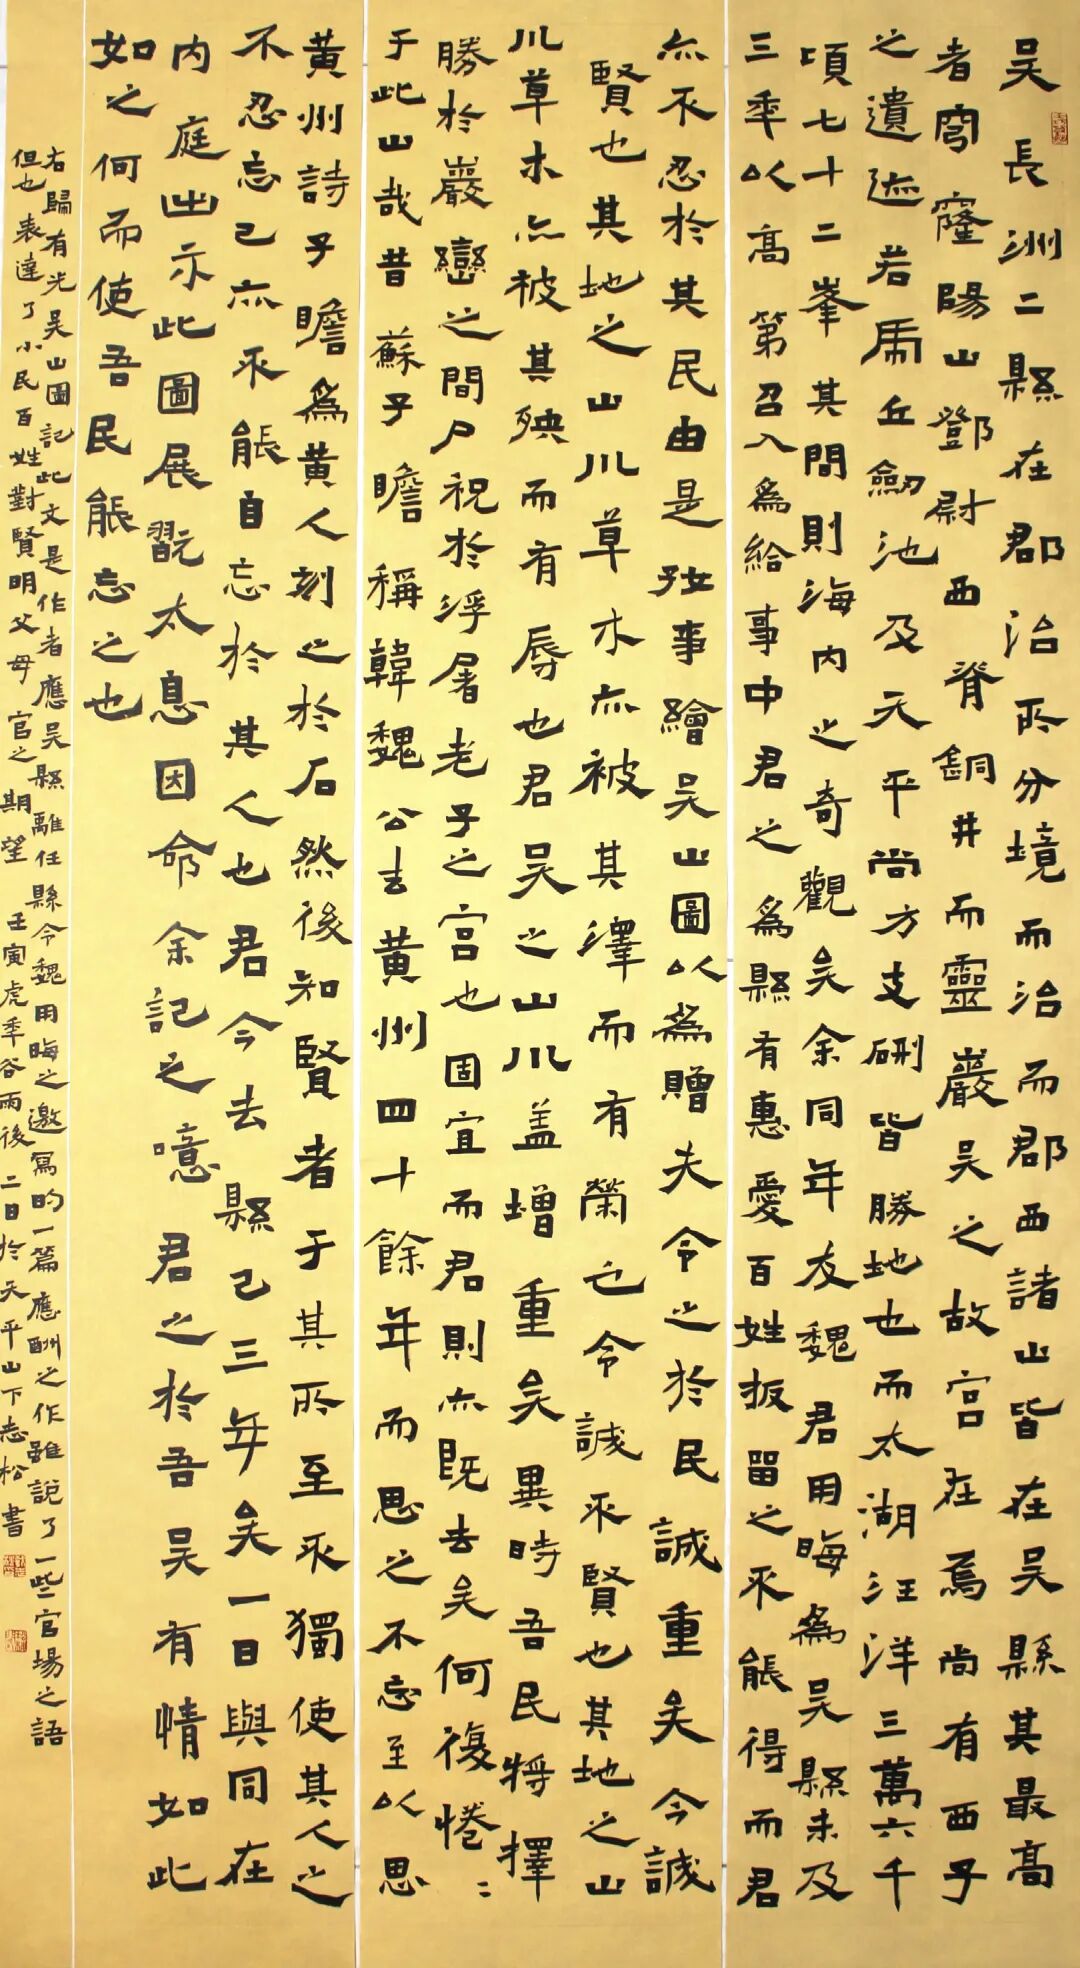 吳長洲二縣在郡治所分境而治而郡西諸山皆在吳縣其最高
者穹窿陽山鄧尉西脊銅井而靈巖吳之故宮在焉尚有西子
之遺迹若虎丘劒池及天平尚方支硎皆勝地也而太湖汪洋三萬六千
頃七十二峯其間則海內之奇觀矣余同年友魏君用晦為吳縣未及
三年以高第召入為給事中君之為縣有惠愛百姓扳留之不能得而君
亦不忍於其民由是好事繪吳山圖以為贈夫令之於民誠重矣令誠
賢也其地之山川草木亦被其澤而有榮也令誠不賢也其地之山
川草木亦被其殃而有辱也君吳之山川盖增重矣異時吾民將擇
勝於巖巒之間尸祝於浮屠老子之宮也固宜而君則亦既去矣何復惓〻
于此山哉昔蘇子瞻稱韓魏公去黃州四十餘年而思之不忘至以思
黃州詩子瞻為黃人刻之於石然後知賢者于其所至不獨使其人之
不忍忘己亦不能自忘於其人也君今去縣已三年矣一日與同在
內庭出示此圖展翫太息因命余記之噫君之於吾吳有情如此
如之何而使吾民能忘之也
右歸有光吳山圖記此文是作者應吳縣離任縣令魏用晦之邀寫的一篇應酬之作雖說了一些官場之語
但也表達了小民百姓對賢明父母官之期望 壬寅虎年谷雨後二日於天平山下志松書